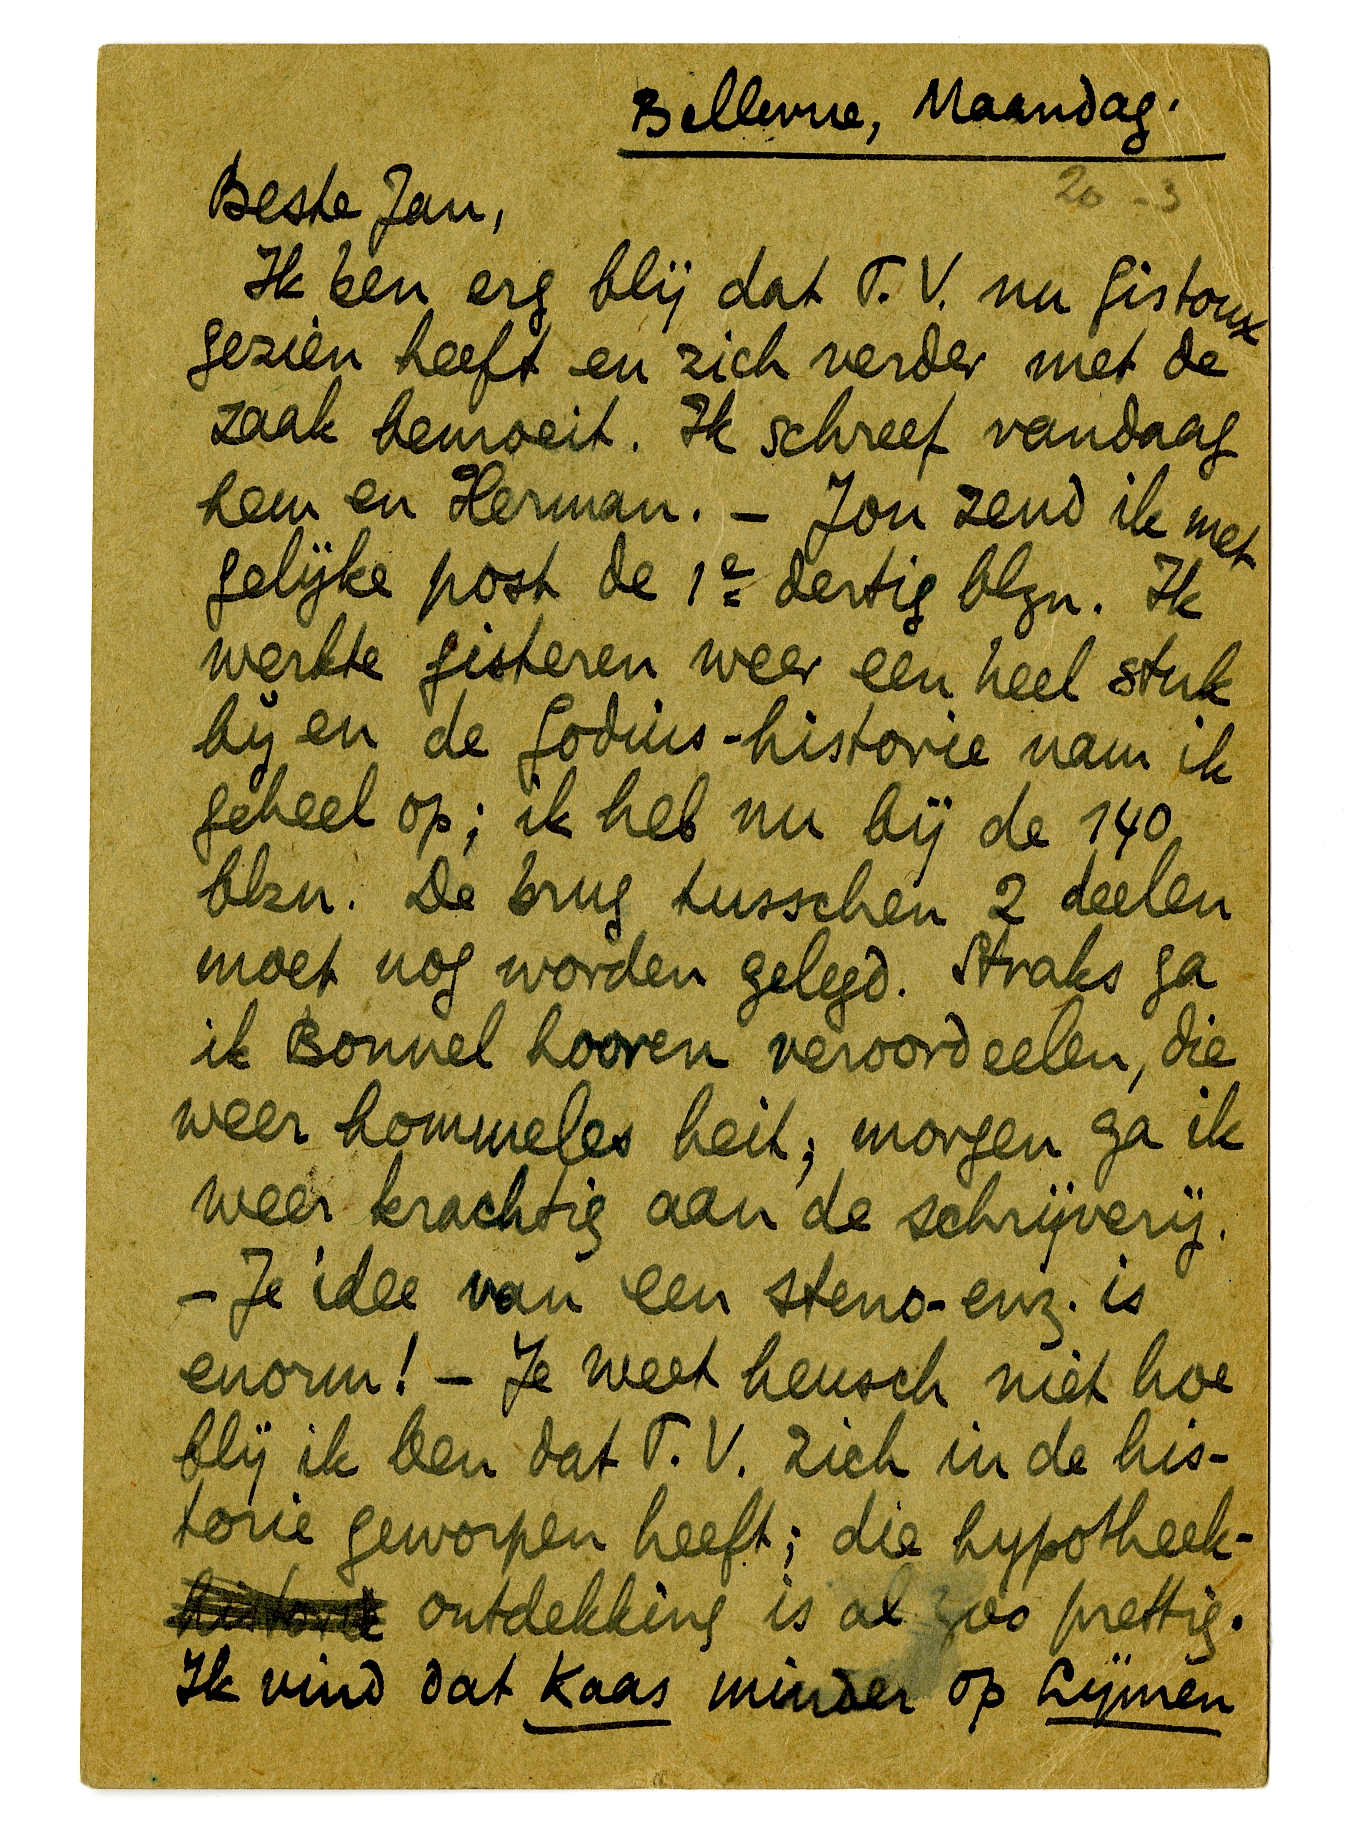 Bellevue, Maandag.
20-3
Beste Jan,
Ik ben erg blij dat T.V. nu Gistoux
gezien heeft en zich verder met de
zaak bemoeit. Ik schreef vandaag
hem en Herman. – Jou zend ik met
gelijke post de 1e dertig blzn. Ik
werkte gisteren weer een heel stuk
bij en de Godius-historie nam ik
geheel op; ik heb nu bij de 140
blzn. De brug tusschen 2 deelen
moet nog worden gelegd. Straks ga
ik Bonnel hooren veroordeelen, die
weer hommeles heit; morgen ga ik
weer krachtig aan de schrijverij.
– Je idee van een steno-enz. is
enorm! – Je weet heusch niet hoe
blij ik ben dat T.V. zich in de his-
torie geworpen heeft; die hypotheek-
historie ontdekking is al zoo prettig.
Ik vind dat Kaas minder op Lijmen